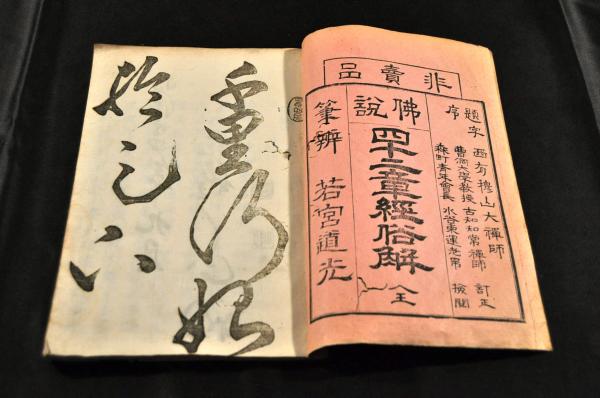 非賣品
題字 西有穆山大禪師
序 曹洞大學教授 古知知常禪師 訂正
森町青年會長 水谷東運老師 檢閲
佛説
四十二章經俗解 全
筆辨 若宮道光
千里行始
於足下